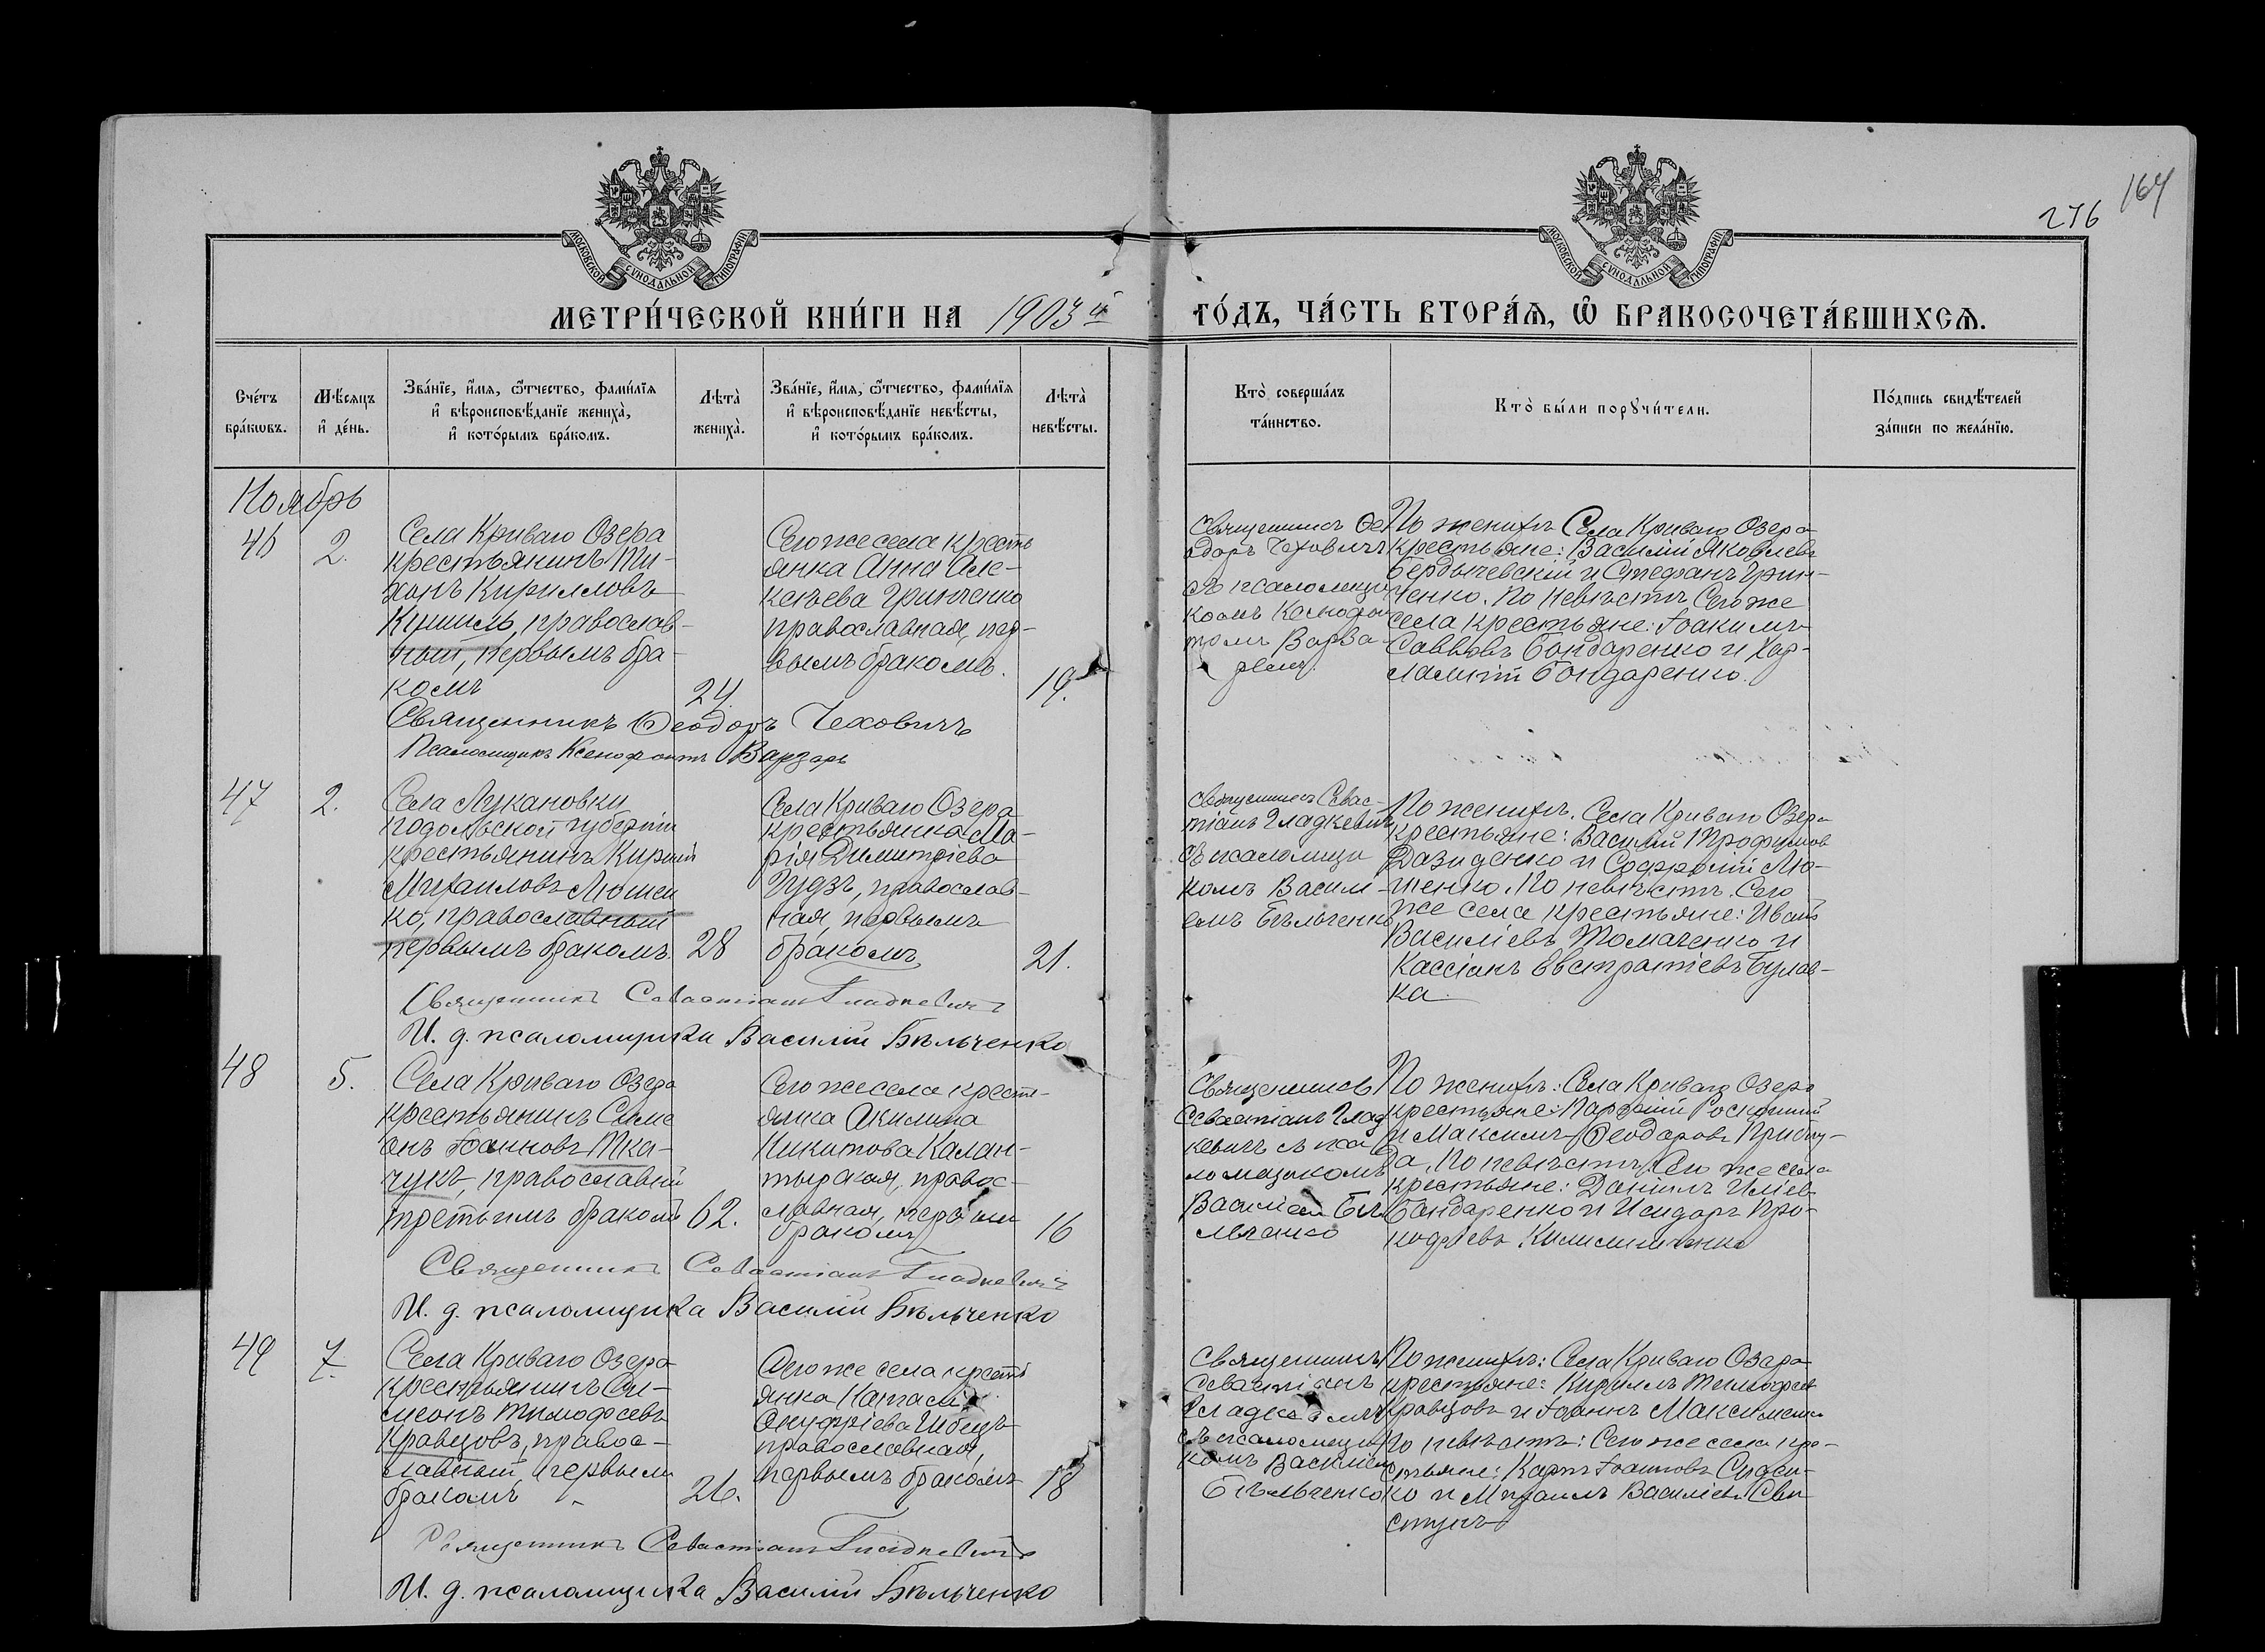 164
276
МОСКОВСКОЙ СѴНОДАЛЬНОЙ ТИПОГРАФІИ
МОСКОВСКОЙ СѴНОДАЛЬНОЙ ТИПОГРАФІИ
МЕТРИ́ЧЕСКОЙ КНИ́ГИ НА 1903й
ГО́ДЪ, ЧА́СТЬ ВТОРА́Я, Ѽ БРАКОСОЧЕТА́ВШИХСЯ.
Сче́тъ
бра́кѡвъ.
Мѣ́сяцъ
и҆ де́нь.
Зва́нїе, и҆́мя, ѻ҆́тчество, фами́лїя
и҆ вѣроисповѣ́данїе жениха̀,
и҆ кото́рымъ бра́комъ.
Лѣта̀
жениха̀.
Зва́нїе, и҆́мя, ѻ҆́тчество, фами́лїя
и҆ вѣроисповѣ́данїе невѣ́сты,
и҆ кото́рымъ бра́комъ.
Лѣта̀
невѣ́сты.
Кто̀ соверша́лъ
та́инство.
Кто̀ бы́ли порꙋчи́тели.
По́дпись свидѣ́телей
за́писи по жела́нїю.
Ноябрь
46
2.
Села Криваго Озера
крестьянинъ Ти-
хонъ Кирилловъ
православ-
ный, первымъ бра-
комъ
24.
Сего же села кресть
янка Анна Але-
ксѣева Гринченко
православная, пер-
вымъ бракомъ.
19.
Священникъ Ѳе
одоръ Чеховичъ
съ псаломщи
комъ Ксенофон
томъ Варза
ремъ.
По женихѣ Села Криваго Озера
крестьяне: Василій Яковлевъ
Бердычевскій и Стефанъ Грин-
ченко. По невѣстѣ Сего же
села крестьяне: Іоакимъ
Саввовъ Бондаренко и Хар-
лампій Бондаренко.
Священникъ Ѳеодоръ Чеховичъ
Псаломщикъ Ксенофонтъ Варзарь
47
2.
Села Лукановки
Подольской губерніи
крестьянинъ Кирилъ
Михаиловъ Люшен
ко, православный
первымъ бракомъ.
28
Села Криваго Озера
крестьянка Ма-
рія Димитріева
Гудзъ, православ-
ная, первымъ
бракомъ
21.
Священникъ Севас-
тіанъ Гладкевичъ
съ псаломщи
комъ Васил-
емъ Бѣльченко
По женихѣ. Села Криваго Озера
крестьяне: Василій Трофимов
Давиденко и Софроній Лю-
шенко. По невѣстѣ. Сего
же села крестьяне: Иванъ
Василіевъ Томаченко и
Кассіанъ Евстратіевъ Булав-
ка.
Священникъ Севастіанъ Гладкевичъ
И. д. псаломщика Василій Бѣльченко
48
5.
Села Криваго Озера
крестьянинъ Симе
онъ Іоанновъ Тка-
чукъ, православный
третьимъ бракомъ
62.
Сего же села кресть-
янка Акилина
Никитова Калан-
тырская, правос-
лавная, первым
бракомъ
16
Священникъ
Севастіанъ Глад
кевичъ съ пса
ломщикомъ
Василіем Бѣ
льченко
По женихѣ: Села Криваго Озера
крестьяне: Парфеній Роскошный
и Максимъ Ѳеодоровъ Прибы-
да. По невѣстѣ: Сего же села
крестьяне: Даніилъ Иліев
Бондаренко и Исидоръ Про-
кофіевъ
Священникъ Севастіанъ Гладкевичъ
И. д. псаломщика Василій Бѣльченко
49
7.
Села Криваго Озера
крестьянинъ Си-
меонъ Тимофеевъ
Кравцовъ, правос-
лавный, первым
бракомъ
26.
Сего же села кресть
янка Наталія
Онуфріева Швецъ
православная,
первымъ бракомъ
18
Священникъ
Севастіанъ
Гладкевичъ
съ псаломщи
комъ Василіем
Бѣльченко
По женихѣ: Села Криваго Озера
крестьяне: Кириллъ Тимофеев
Кравцовъ и Іоаннъ Максименко
По невѣстѣ: Сего же села кре-
стьяне: Карпъ Іоанновъ Спаси-
ко и Михаилъ Василіевъ Сви
стунъ
Священникъ Севастіанъ Гладкевичъ
И. д. псаломщика Василій Бѣльченко